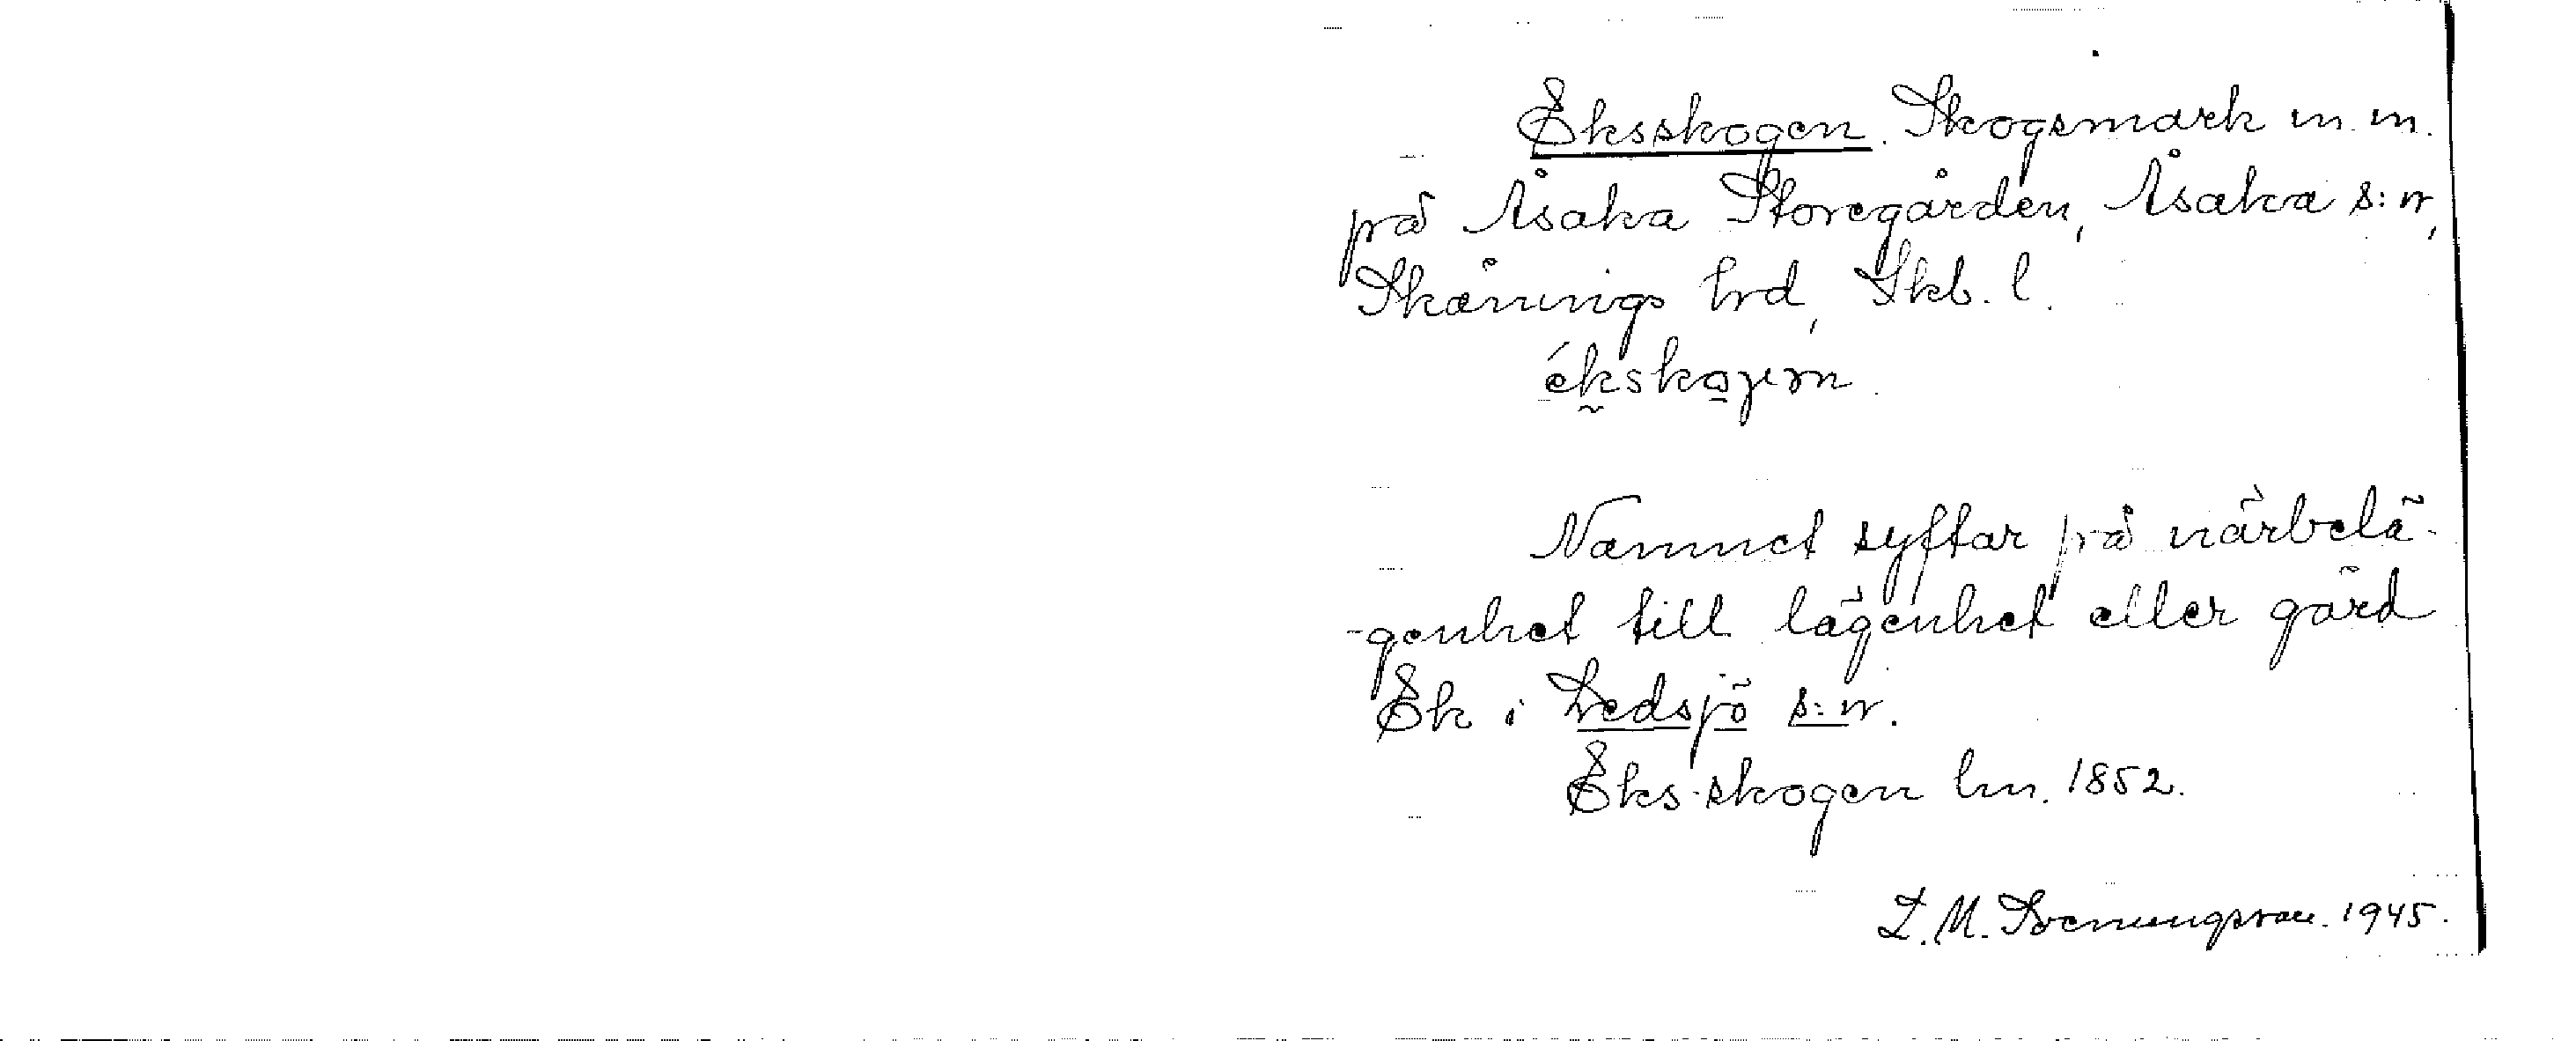 Eksskogen. Skogsmark m.m.
på Åsaka Storegården, Åsaka s:n,
Skånings hrd, Skb. l.
Namnet syftar på närbelä-
-genhet till lägenhet eller gård
Ek i Ledsjö s:n.
Eks-skogen lm. 1852.
L. M. Svenungsson. 1945.